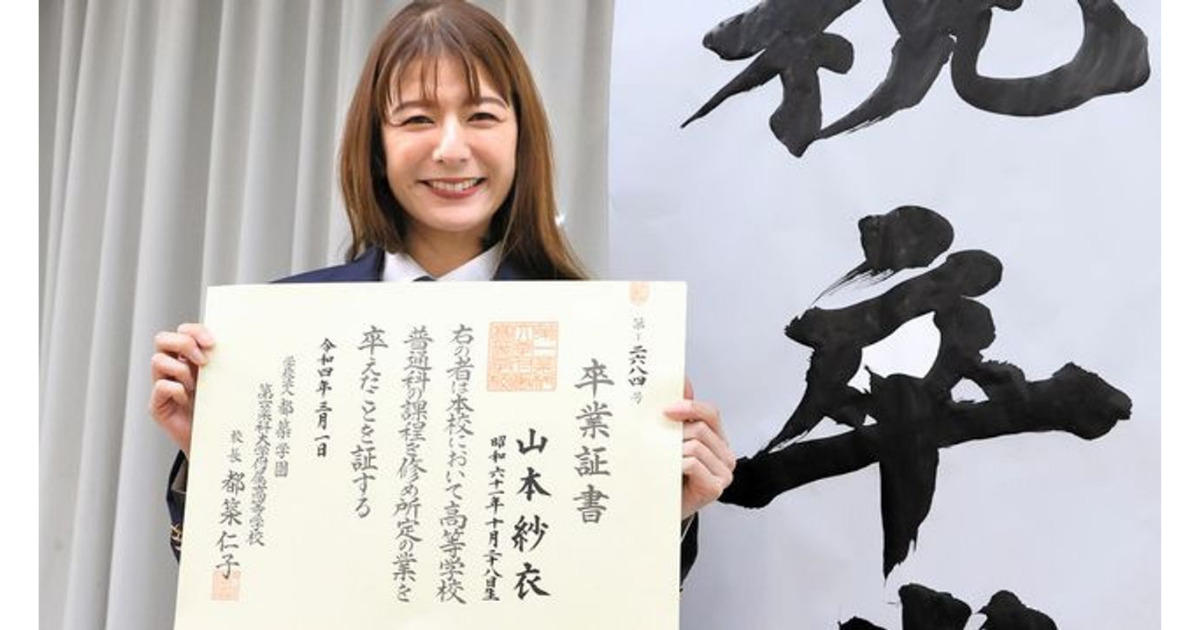 祝卒
卒業証書
第一二六八四号
山本紗衣
昭和六十一年十月二十八日生
右の者は本校において高等学校
普通科の課程を修め所定の業を
卒えたことを証する
令和四年三月一日
学校法人都築学園
第一薬科大学付属高等学校
校長 都築仁子